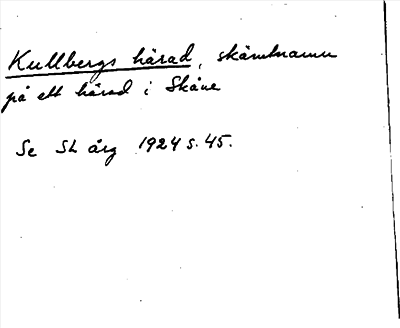 Kullbergs härad, skämtnamn
på ett härad i Skåne
Se SL årg 1924 s. 45.